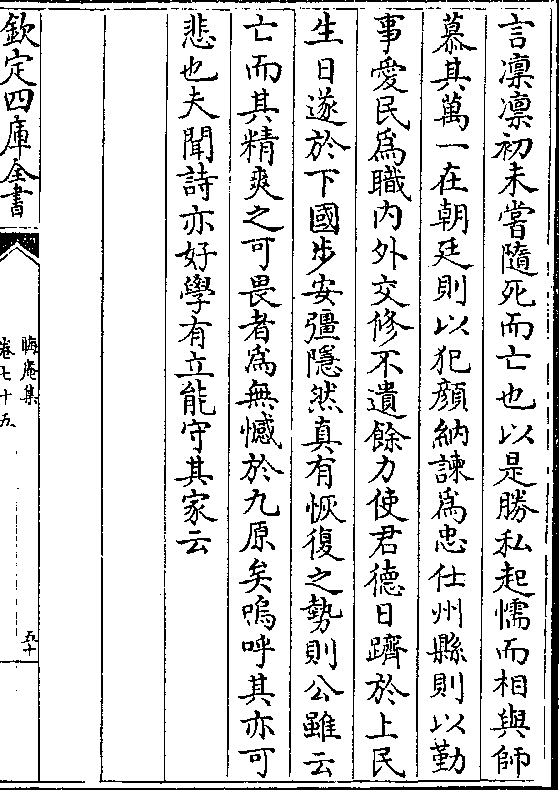 言凜凜初未嘗隨死而亡也以是勝私起懦而相與師
慕其萬一在朝廷則以犯顔納諫爲忠仕州縣則以勤
事愛民爲職内外交修不遺餘力使君德日躋於上民
生日遂於下國步安彊隱然真有恢復之勢則公雖云
亡而其精爽之可畏者爲無憾於九原矣嗚呼其亦可
悲也夫聞詩亦好學有立能守其家云
欽定四庫全書
晦庵集
卷七十五
五十